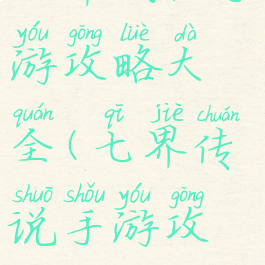 yóu gōng lüè dà
游攻略大
quán qī jiè chuán
全(七界传
shuō shǒu yóu gōng
说手游攻